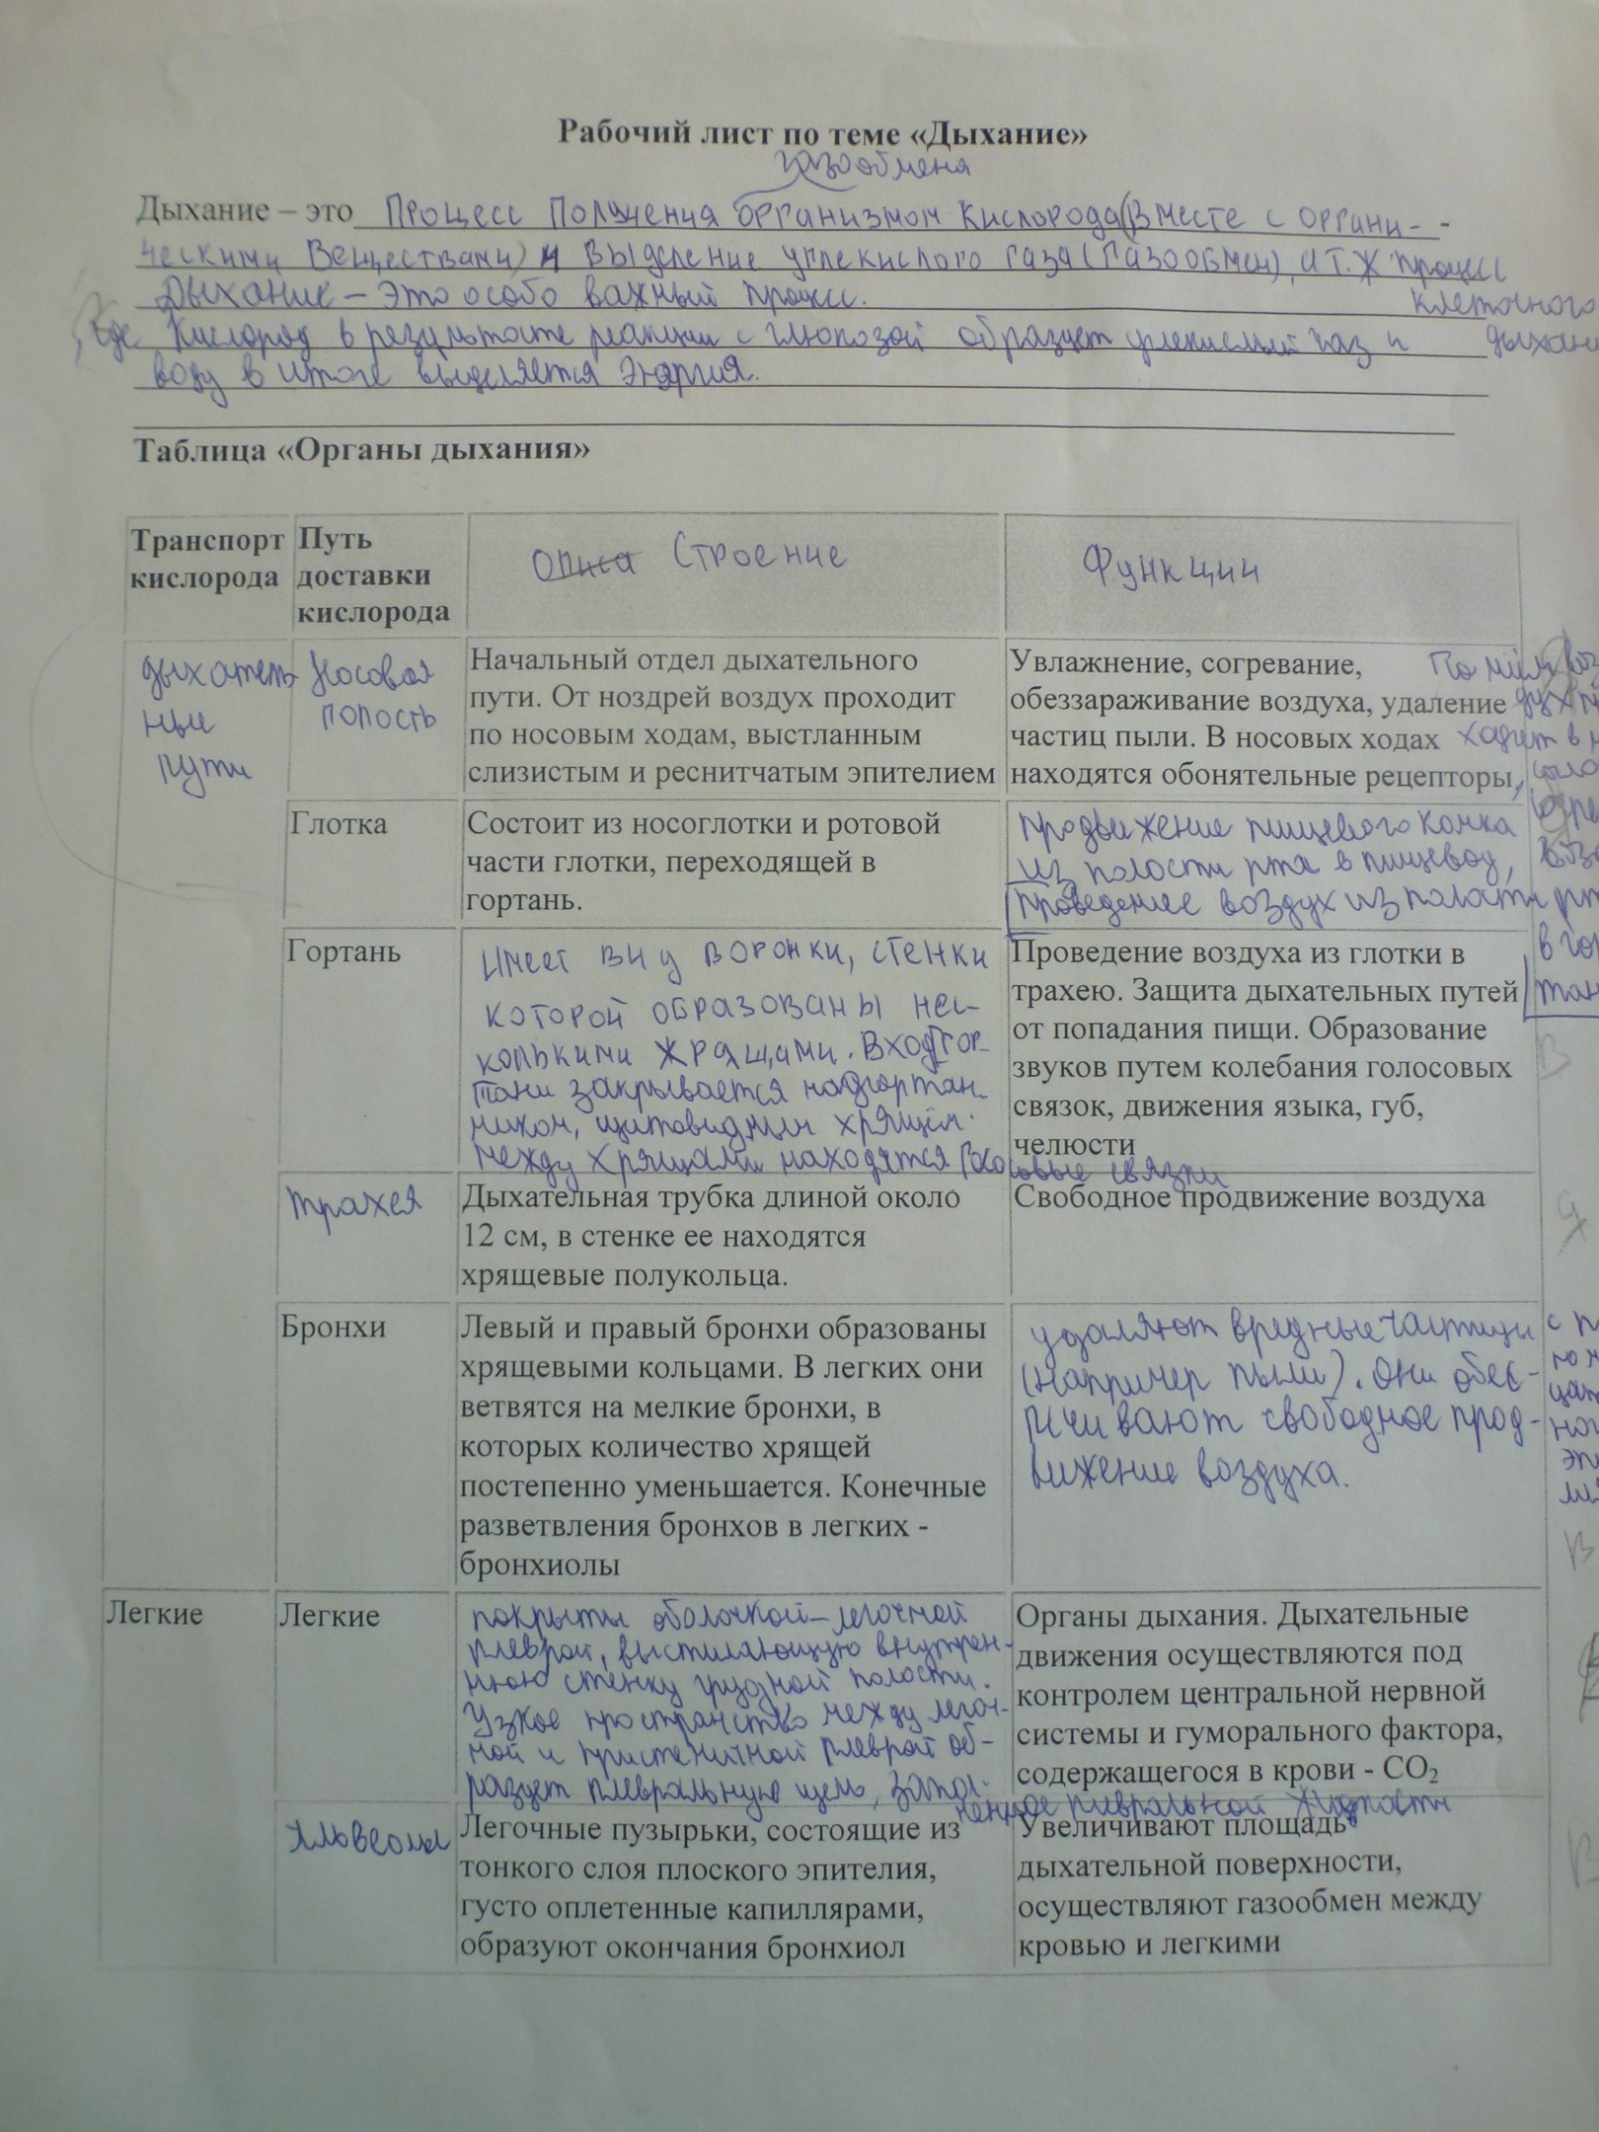 Рабочий лист по теме «Дыхание»
газообмена
Дыхание – это Процесс Получения организмом кислорода (вместе с органи-
ческими Веществами) и выделение углекислого газа (газообмен), а т.ж процесс
Дыхание – это особо важный процесс. клеточного
, где кислород в результате реакции с глюкозой образует углекислый газ и
воду в итоге выделяется энергия.
Таблица «Органы дыхания»
Транспорт кислорода
Путь доставки кислорода
Строение
Функции
дыхатель
ные
пути
Носовая
полость
Начальный отдел дыхательного
пути. От ноздрей воздух проходит
по носовым ходам, выстланным
слизистым и реснитчатым эпителием
Увлажнение, согревание,
обеззараживание воздуха, удаление
частиц пыли. В носовых ходах
находятся обонятельные рецепторы,
Глотка
Состоит из носоглотки и ротовой
части глотки, переходящей в
гортань.
продвижение пищевого комка
из полости рта в пищевод,
проведение воздух из полости
Гортань
Имеет вид воронки, стенки
которой образованы нес-
колькими хрящами. Вход гор-
тани закрывается надгортан-
ником, щитовидным хрящем.
между хрящами находятся голосовые связки
Проведение воздуха из глотки в
трахею. Защита дыхательных путей
от попадания пищи. Образование
звуков путем колебания голосовых
связок, движения языка, губ,
челюсти
трахея
Дыхательная трубка длиной около
12 см, в стенке ее находятся
хрящевые полукольца.
Свободное продвижение воздуха
Бронхи
Левый и правый бронхи образованы
хрящевыми кольцами. В легких они
ветвятся на мелкие бронхи, в
которых количество хрящей
постепенно уменьшается. Конечные
разветвления бронхов в легких -
бронхиолы
удаляют вредные частицы
(например пыли). Они обес-
печивают свободное прод-
вижение воздуха.
Легкие
Легкие
покрыты оболочкой – легочной
плеврой, выстилающую внутрен-
нюю стенку грудной полости.
Узкое пространство между легоч-
ной и пристеночной плеврой об-
разует плевральную щель, запол-
ненное плевральной жидкости
Органы дыхания. Дыхательные
движения осуществляются под
контролем центральной нервной
системы и гуморального фактора,
содержащегося в крови - CO₂
Альвеолы
Легочные пузырьки, состоящие из
тонкого слоя плоского эпителия,
густо оплетенные капиллярами,
образуют окончания бронхиол
Увеличивают площадь
дыхательной поверхности,
осуществляют газообмен между
кровью и легкими